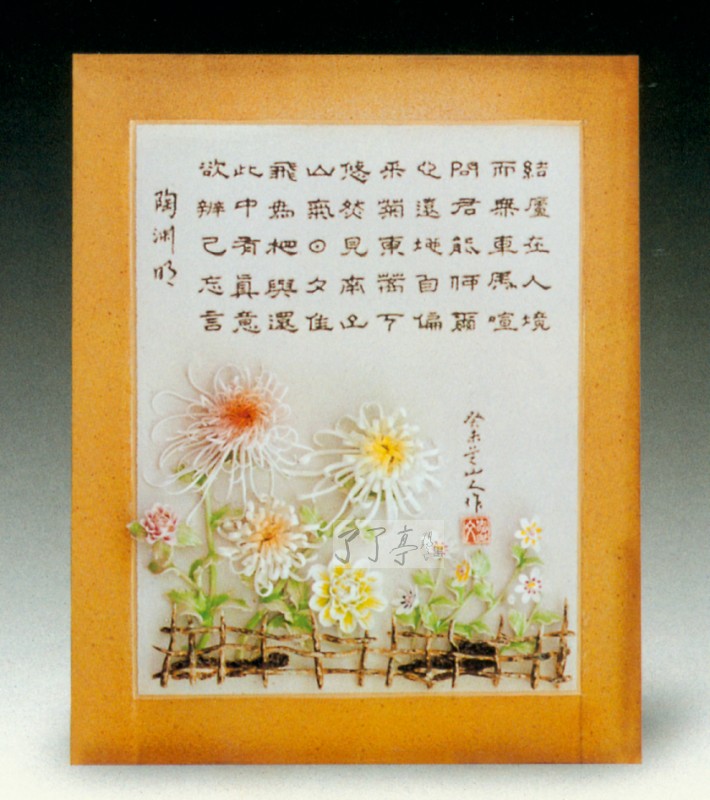 結廬在人境
而無車馬喧
問君能何爾
心遠地自偏
采菊東籬下
悠然見南山
山氣日夕佳
飛鳥相與還
此中有眞意
欲辨已忘言
陶淵明
癸未芝山人作
了了亭